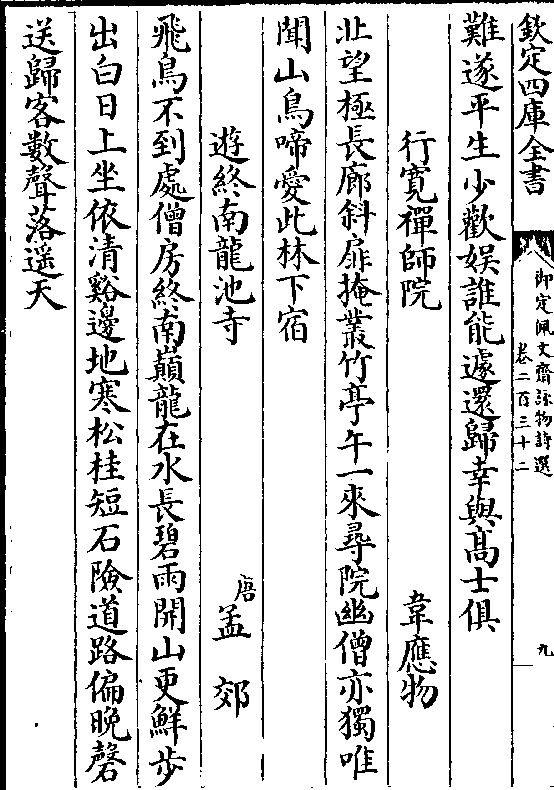 欽定四庫全書
御定佩文齋詠物詩選
卷二百三十二
九
難遂平生少歡娛誰能遽還歸幸與髙士俱
行寛禪師院 韋應物
北望極長廊斜扉掩叢竹亭午一來尋院幽僧亦獨唯
聞山鳥啼愛此林下宿
遊終南龍池寺 唐孟郊
飛鳥不到處僧房終南巔龍在水長碧雨開山更鮮步
出白日上坐依清谿邊地寒松桂短石險道路偏晩磬
送歸客數聲落遥天